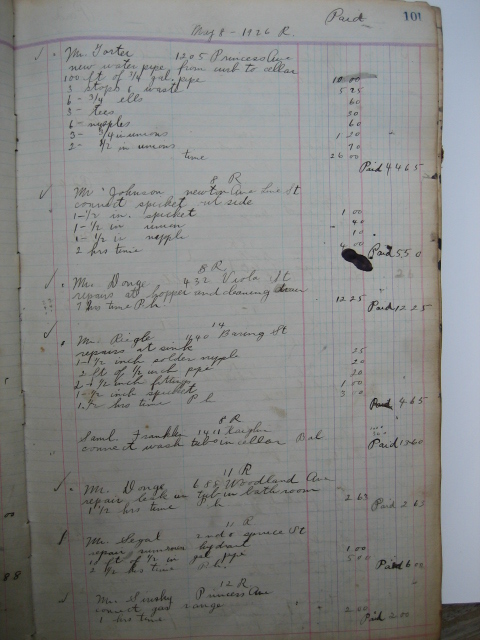 Paid 101
May 8 - 1926 R.
Mr. Forter 1205 Princess Ave
new water pipe from curb to cellar
100 ft of 3/4 gal. pipe 10 00
3 stops & waste 5 25
6 - 3/4 ells 60
3 - tees 30
6 - nypples 60
3 - 3/4 in unions 1 20
2 - 1/2 in unions 70
time 26 00
Paid 44 65
8 R
Mr. Johnson newton Ave Line St
connect spicket at side
1 - 1/2 in. spicket 1 00
1 - 1/2 in union 40
1 - 1/2 in nypple 10
2 hrs time 4 00 Paid 5 50
8 R
Mr. Donge 432 Viola St
repairs to hopper and cleaning drain
7 hrs time P. h 12 25 Paid 12 25
14
Mr. Rigle 440 Baring St
repairs at sink
1 - 1/2 inch solder nypple 25
2 ft of 1/2 inch pipe 20
2 - 1/2 inch fittings 20
1 - 1/2 inch spicket 1 00
1 1/2 hrs time P h 3 00
Paid 4 65
8 R
Saml. Franklin 1411
connect wash tubs in cellar Bal
Paid
11 R
Mr. Donge 688 Woodland Ave
repair leak in tub in bathroom
1 1/2 hrs time P h 2 63 Paid 2 63
11 R
Mr. Segal 2nd & spruce St
repairs hydrant
1 ft of 1/2 in gal pipe 1 00
2 1/2 hrs time P. h. 5 00 Paid 6 00
12 R
Mr. Princess Ave
connect gas range
1 hrs time 2.00 Paid 2.00
00
88